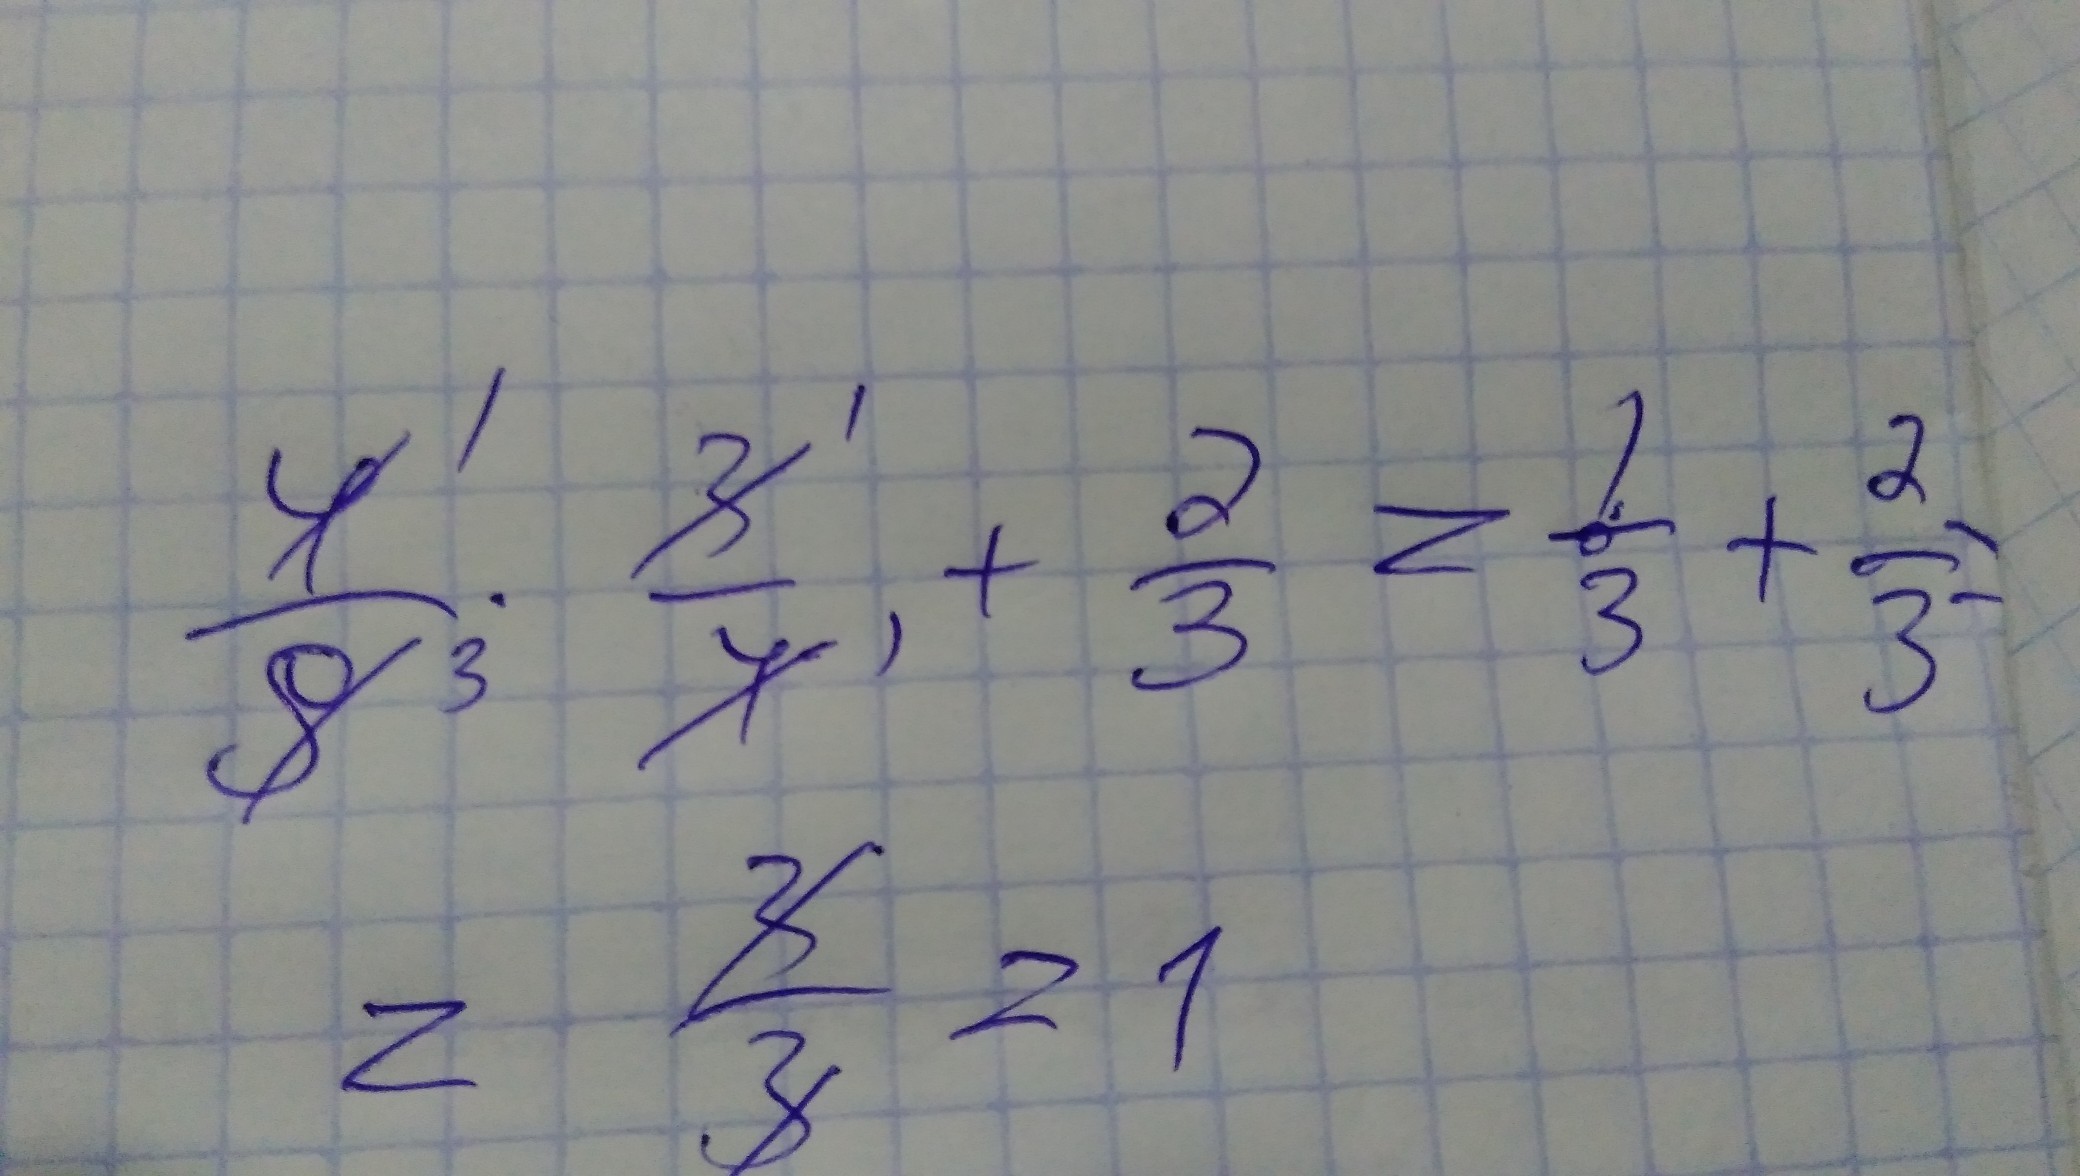 4/9 · 3/4 + 2/3 = 1/3 + 2/3 =
= 3/3 = 1